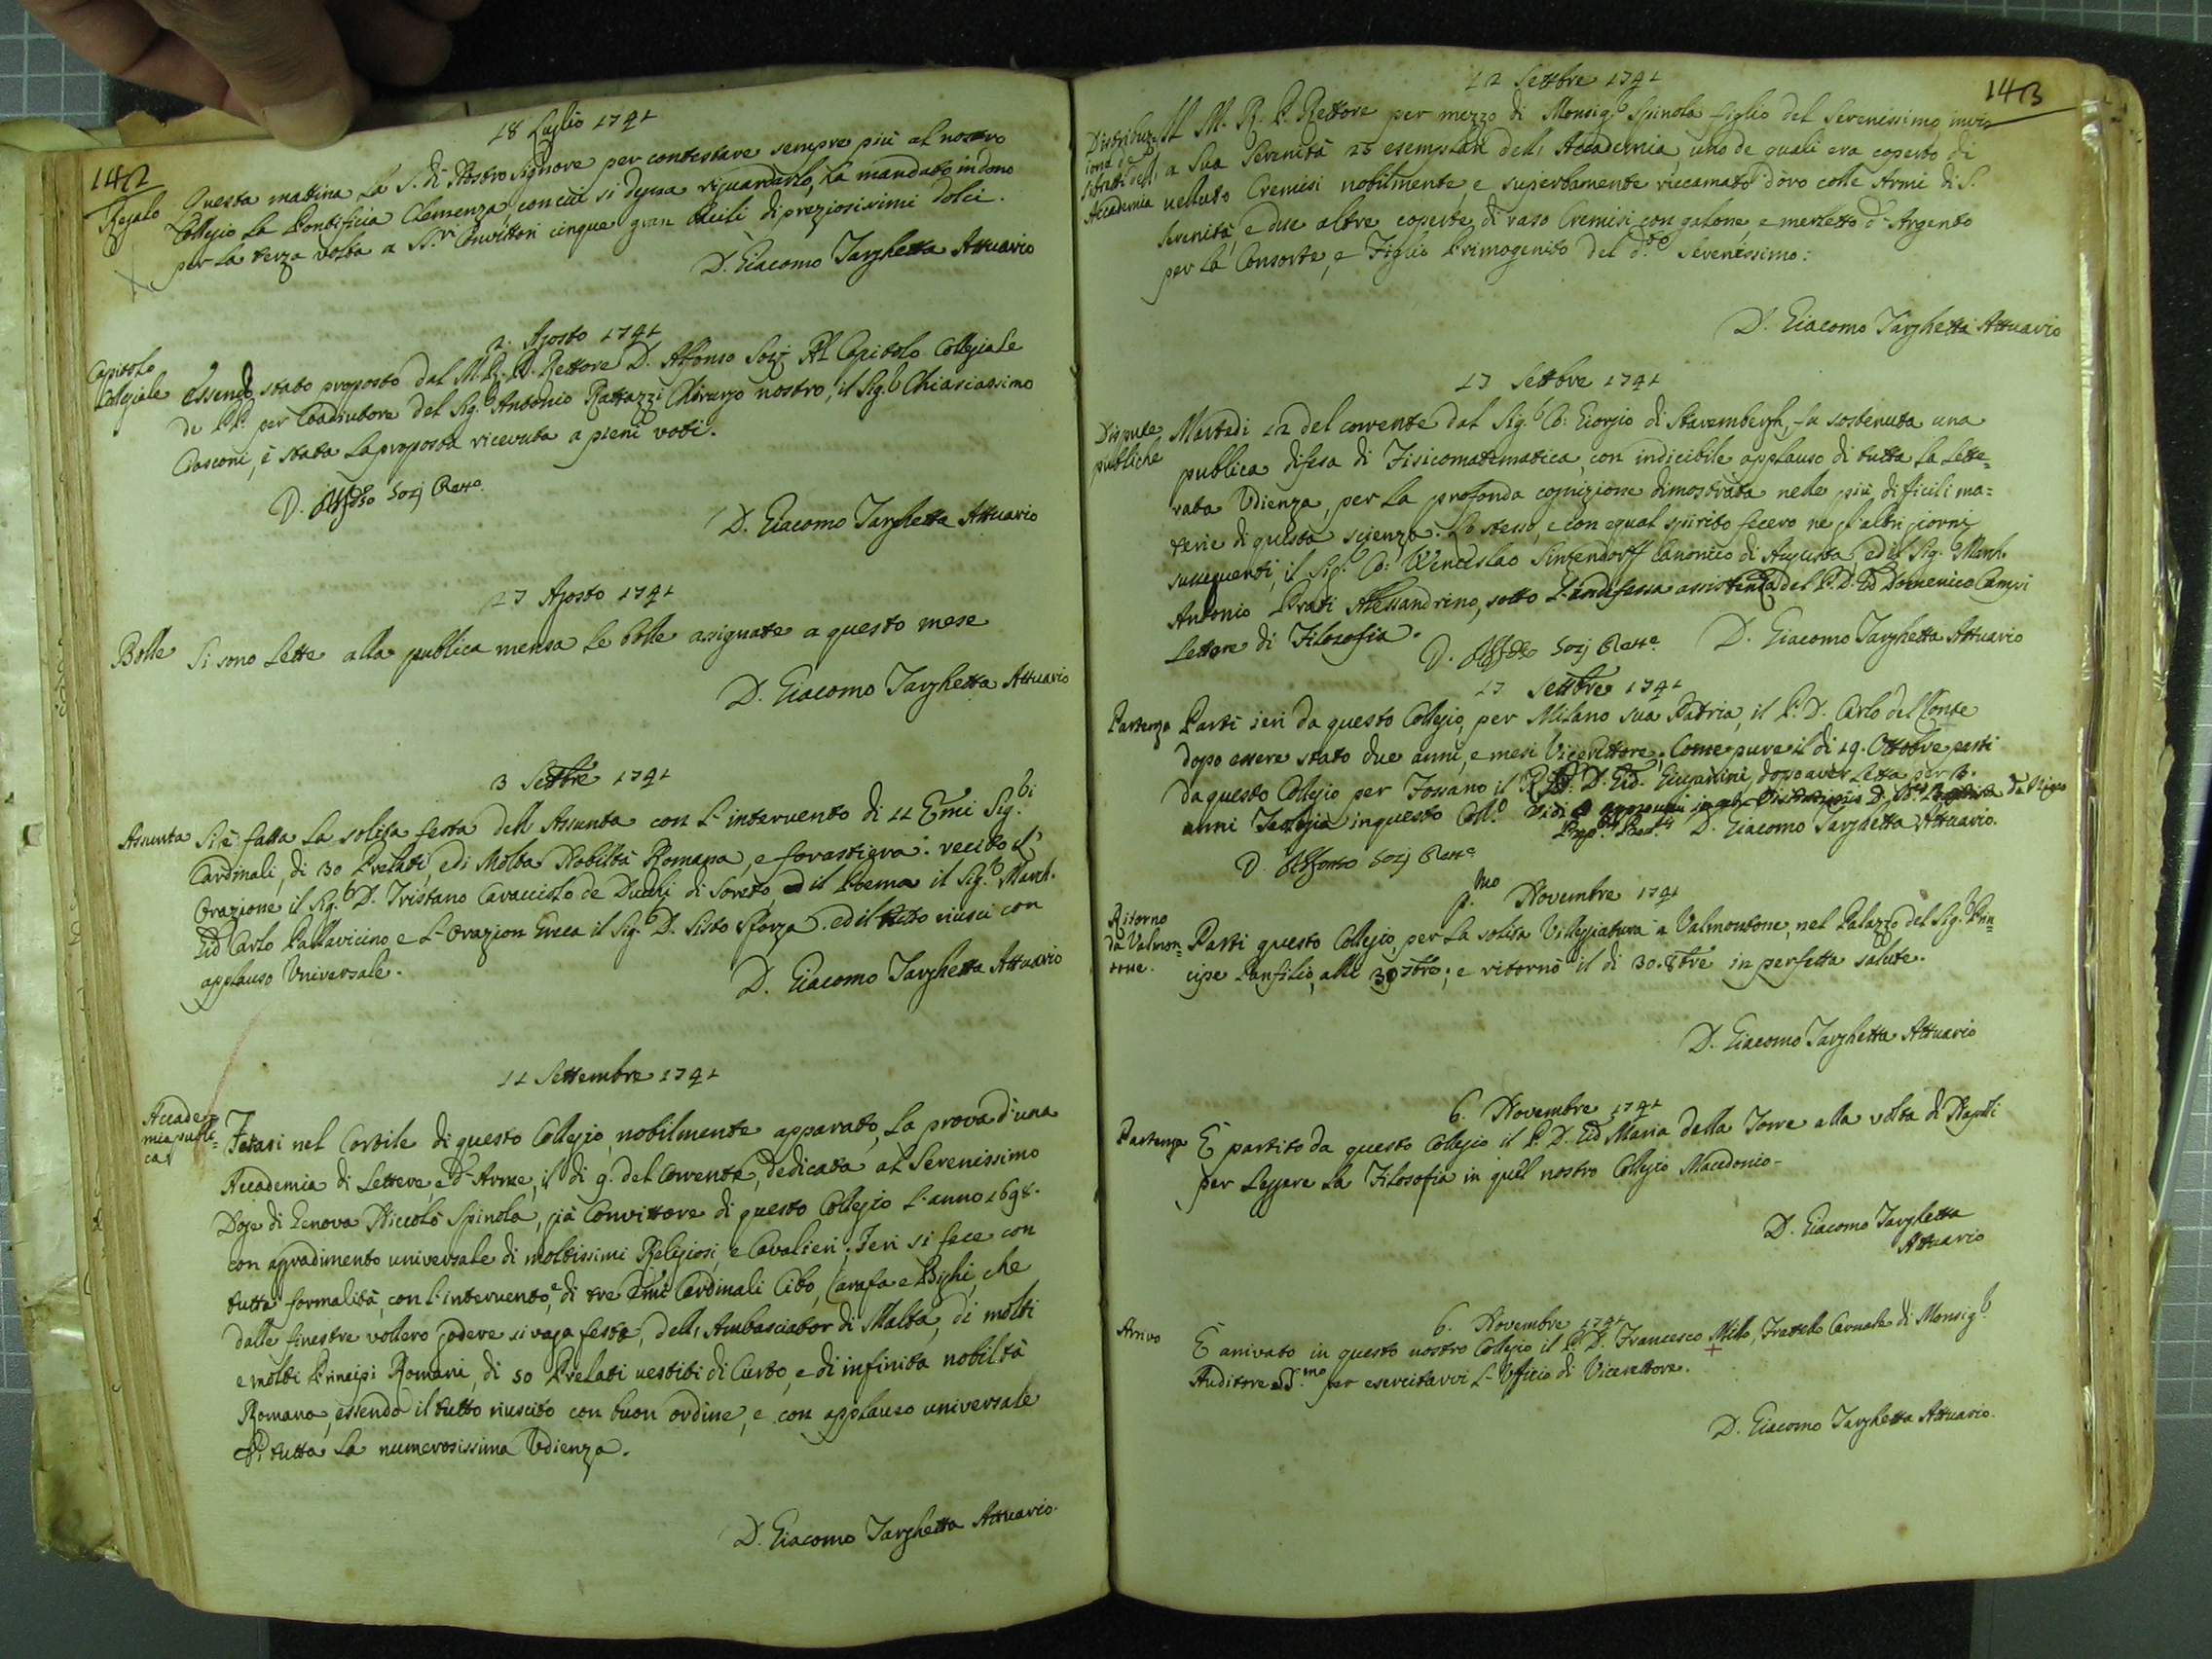 142
18 Luglio 1741
Regalo
Questa mattina la S. di Nostro Signore per contestare sempre più al nostro
Collegio la Pontificia Clemenza, con cui si degna riguardarlo, ha mandato in dono
per la terza volta a SS.ri Convittori cinque gran bacili di preziosissimi dolci.
D. Giacomo Targhetta Attuario
2. Agosto 1741
Capitolo
Collegiale
Essendo stato proposto dal M. R. P. Rettore D. Alfonso Sozj al Capitolo Collegiale
de PP. per Coadiutore del Sig.r Antonio Rattazzi Chirurgo nostro, il Sig.r Chiarissimo
Ciasconi, è stata la proposta ricevuta a pieni voti.
D. Alfonso Sozj Rett.e
D. Giacomo Targhetta Attuario
27 Agosto 1741
Bolle
Si sono lette alla publica mensa le Bolle asignate a questo mese
D. Giacomo Targhetta Attuario
3 Settbre 1741
Assunta
Si è fatta la solita festa dell'Assunta con l'intervento di 11 Emi Sig.ri
Cardinali, di 30 Prelati, e di molta Nobiltà Romana, e forastiera. recitò l'
Orazione il Sig.r D. Tristano Caracciolo de Duchi di Soreto, ed il Poema il Sig.r March.
Gio Carlo Pallavicino e l'Orazion Greca il Sig.r D. Sisto Sforza. ed il tutto riuscì con
applauso Universale.
D. Giacomo Targhetta Attuario
11 Settembre 1741
Accade=
mia publi=
ca
Fecasi nel Cortile di questo Collegio nobilmente apparato, la prova d'una
Accademia di Lettere, e d'Arme, il dì 9. del corrente, dedicata al Serenissimo
Doge di Genova Niccolò Spinola, già Convittore di questo Collegio l'anno 1698.
con agradimento universale di moltissimi Religiosi, e Cavalieri. Ieri si fece con
tutta formalità, con l'intervento di tre Emi Cardinali Cibo, Carafa e Bighi, che
dalle finestre vollero godere sì vaga festa, dell'Ambasciator di Malta, di molti
e molti Principi Romani, di 50 Prelati vestiti di Curto, e di infinita nobiltà
Romana, essendo il tutto riuscito con buon ordine, e con applauso universale
di tutta la numerosissima Udienza.
D. Giacomo Targhetta Attuario.
143
12 Settbre 1741
Distribuz=
ione de
libretti dell'
Accademia
Il M. R. P. Rettore per mezzo di Monsig.r Spinola figlio del Serenissimo inviò
a Sua Serenità 25 esemplari dell'Accademia, uno de quali era coperto di
velluto Cremisi nobilmente, e superbamente riccamato d'oro colle Armi di S.
Serenità, e due altre coperte di raso Cremisi con galone e merletto d'Argento
per la Consorte, e Figlio Primogenito del d.to Serenissimo:
D. Giacomo Targhetta Attuario
17 Settbre 1741
Dispute
publiche
Martedì 12 del corrente dal Sig.r Co: Giorgio di Starembergh, fu sostenuta una
publica difesa di Fisicomatematica, con indicibile applauso di tutta la lette=
rata Udienza, per la profonda cognizione dimostrata nelle più dificili ma=
terie di questa scienza. Lo stesso, e con egual spirito fecero ne gl'altri giorni
susseguenti, il Sig.r Co: Wenceslao Sinzendorff Canonico di Augusta, ed il Sig.r March.
Antonio Prati Alessandrino, sotto l'indefessa assistenza del P. D. Gio Domenico Campi
Lettore di Filosofia.
D. Alfonso Sozj Rett.e D. Giacomo Targhetta Attuario
17 Settbre 1741
Partenza
Partì ieri da questo Collegio, per Milano sua Patria, il P. D. Carlo del Conte
dopo essere stato due anni, e mesi Vicerettore; Come pure il dì 19. Ottobre partì
da questo Collegio per Fossano il D. Gio. Giugianini, dopo aver letta per 3.
anni Teologia in questo Coll.o
D. Giacomo Targhetta Attuario.
D. Alfonso Sozj Rett.e
p.mo Novembre 1741
Ritorno
da Valmon=
tone.
Partì questo Collegio, per la solita Villeggiatura a Valmontone, nel Palazzo del Sig.r Prn=
cipe Panfilio, alli 30 7bre; e ritornò il dì 30. 8bre in perfetta salute.
D. Giacomo Targhetta Attuario
6. Novembre 1741
Partenza
È partito da questo Collegio il P. D. Gio Maria della Torre alla volta di Napoli
per leggere la Filosofia in quel nostro Collegio Macedonio.
D. Giacomo Targhetta
Attuario
6. Novembre 1741
Arrivo
È arrivato in questo nostro Collegio il P. D. Francesco Millo, Fratello Carnale di Monsig.r
Auditore SS.mo per esercitarvi l'Ufficio di Vicerettore.
D. Giacomo Targhetta Attuario.